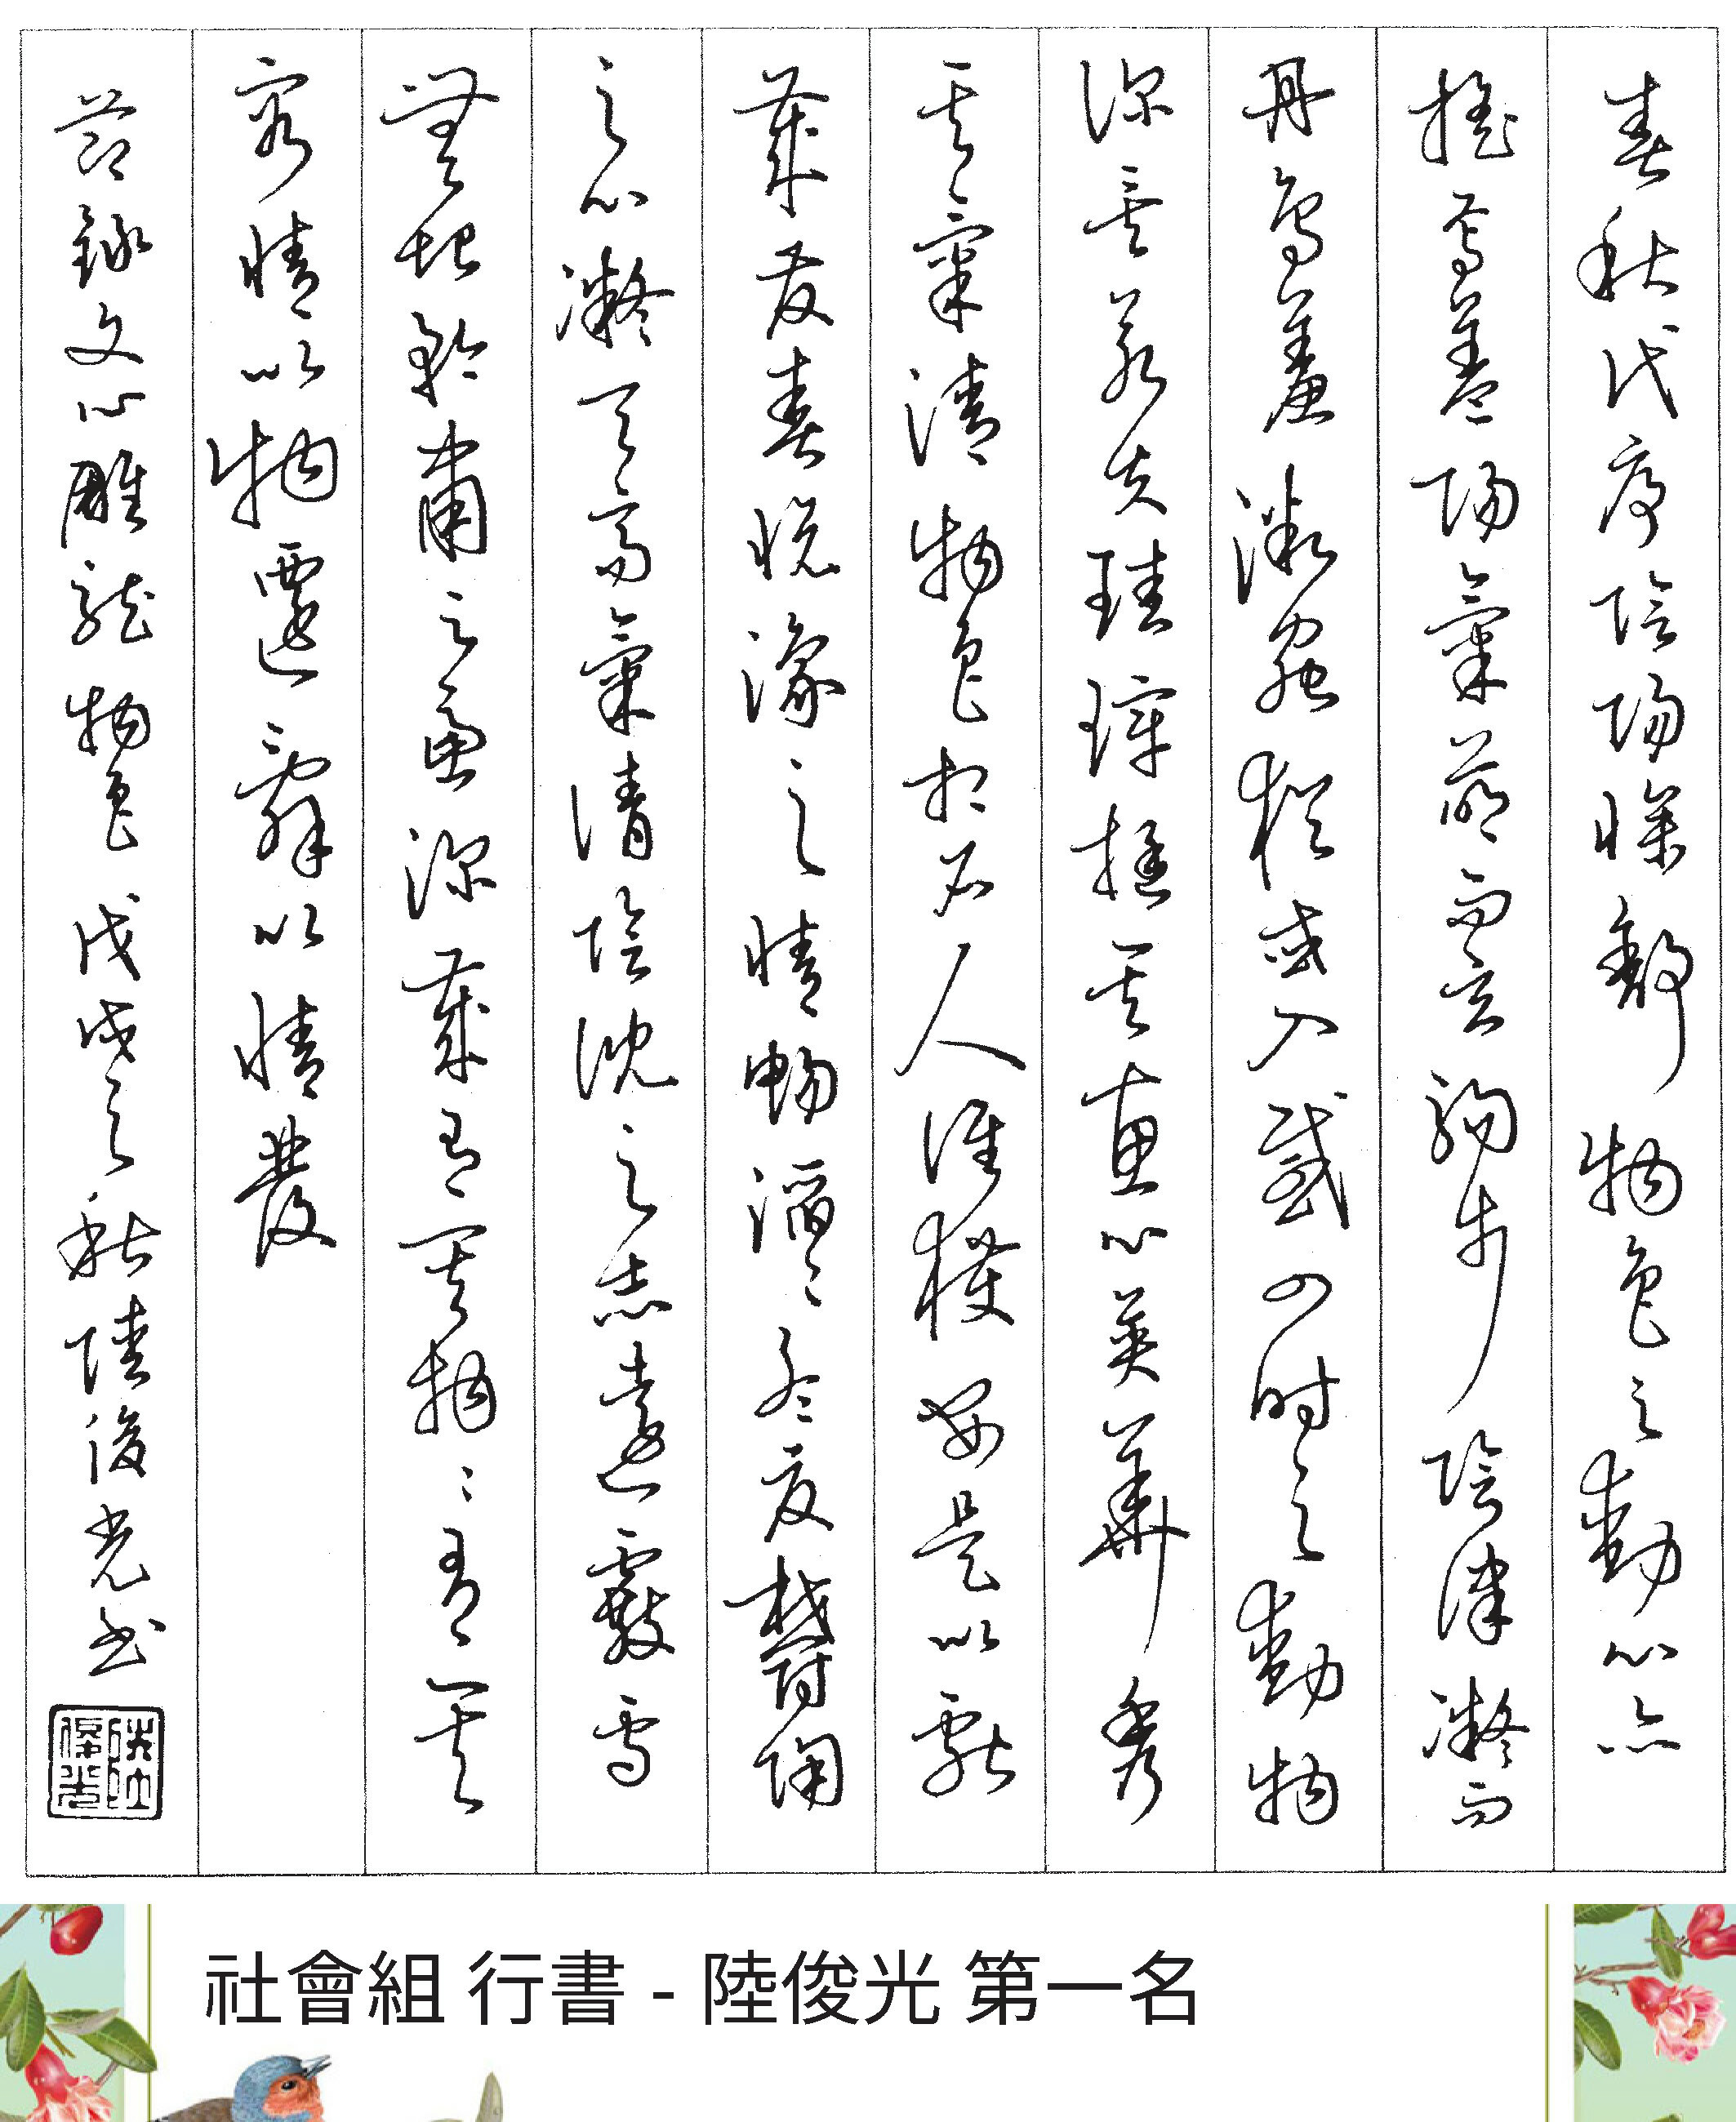 春秋代序陰陽慘舒物色之動心亦
搖焉蓋陽氣萌而玄駒步陰律凝而
丹鳥羞微蟲猶或入感四時之動物
深矣若夫珪璋挺其惠心英華秀
其氣清物色相召人誰獲安是以獻
歲發春悅豫之情暢滔〻孟夏鬱陶
之心凝天高氣清陰沈之志遠霰雪
無垠矜肅之慮深歲有其物〻有其
容情以物遷辭以情發
節錄文心雕龍物色戊戌之秋陸俊光書
陸俊光
社會組 行書 - 陸俊光 第一名